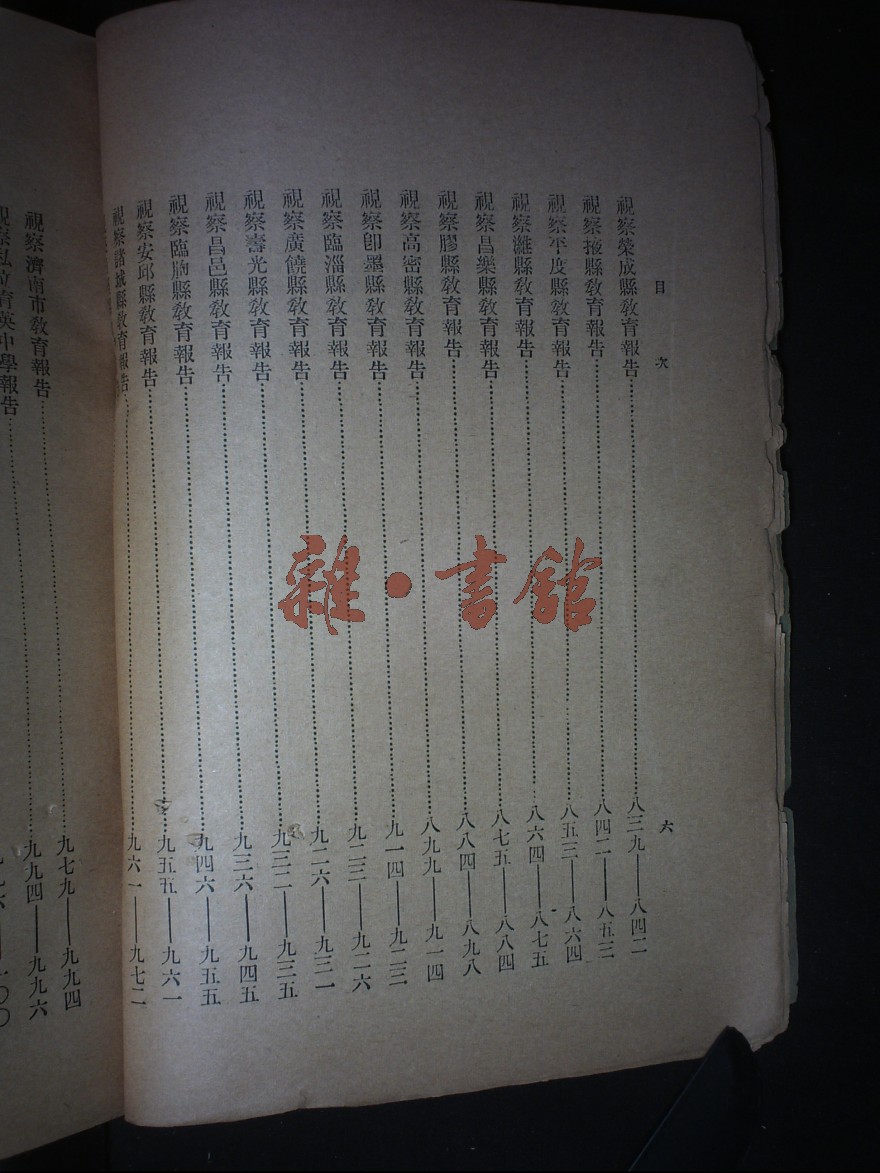 目次 六
視察榮成縣教育報告……八三九——八四二
視察掖縣教育報告……八四二——八五三
視察平度縣教育報告……八五三——八六四
視察濰縣教育報告……八六四——八七五
視察昌樂縣教育報告……八七五——八八四
視察膠縣教育報告……八八四——八九八
視察高密縣教育報告……八九九——九一四
視察即墨縣教育報告……九一四——九二三
視察臨淄縣教育報告……九二三——九二六
視察廣饒縣教育報告……九二六——九三一
視察壽光縣教育報告……九三二——九三五
視察昌邑縣教育報告……九三六——九四五
視察臨朐縣教育報告……九四六——九五五
視察安邱縣教育報告……九五五——九六一
視察諸城縣教育報告……九六一——九七二
視察濟南市教育報告……九七九——九九四
視察私立育英中學報告……九九四——九九六
雜·書館